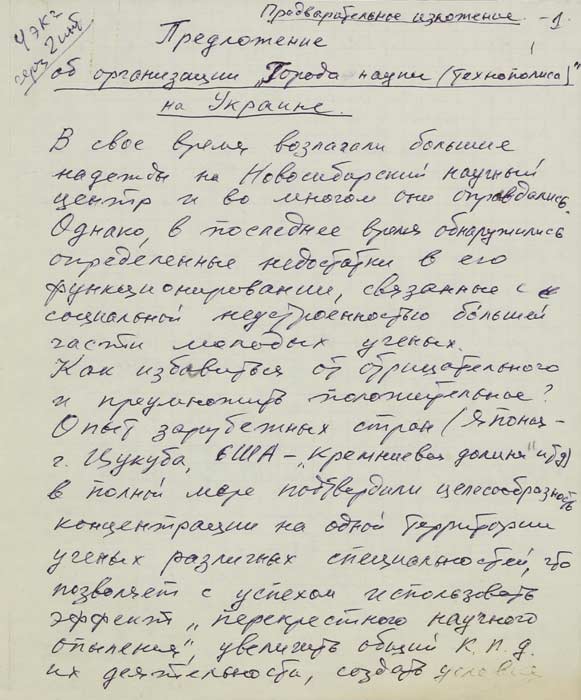 Предварительное изложение. -1.
4 экз
2 инв
Предложение
об организации „Города науки (Технополиса)"
на Украине.
В свое время возлагали большие
надежды на Новосибирский научный
центр и во многом они оправдались.
Однако, в последнее время обнаружились
определенные недостатки в его
функционировании, связанные с
социальной неустроенностью большей
части молодых ученых.
Как избавиться от отрицательного
и преумножить положительное?
Опыт зарубежных стран (Япония-
г. Цукуба, США – „Кремниевая долина" и др)
в полной мере подтвердили целесообразность
концентрации на одной территории
ученых различных специальностей, что
позволяет с успехом использовать
эффект „перекрестного научного
опыления", увеличить общий к.п.д.
их деятельности, создать условия